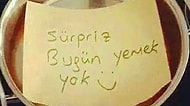 Sürpriz
Bugün yemek
yok